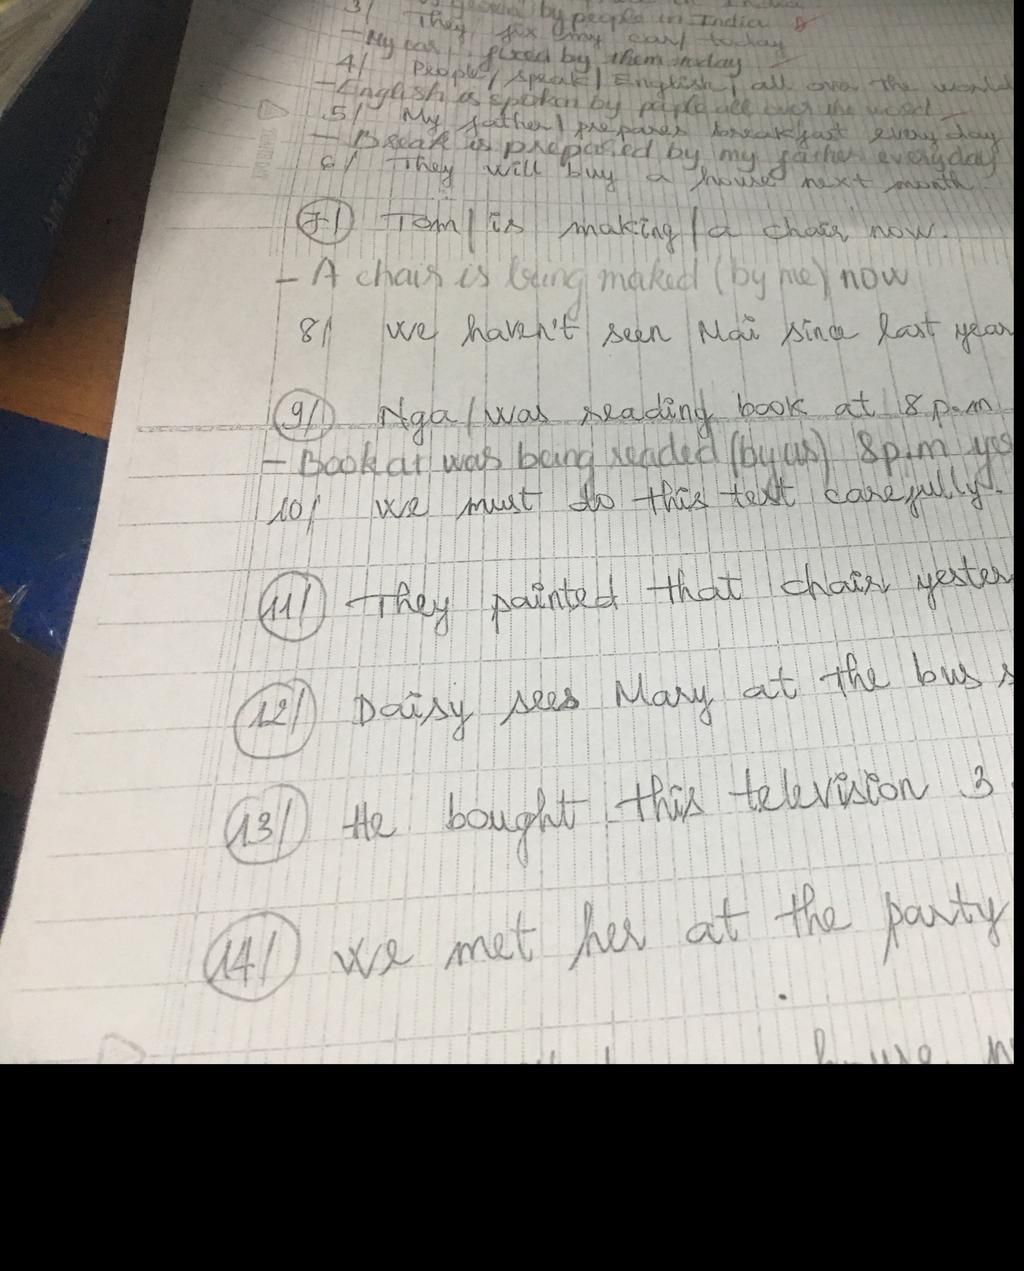 by people in India
3/ They fix my car/ today
- My car fixed by them today
4/ People/ speak/ English/ all over the world
- English is spoken by people all over the world
5/ My father/ prepares breakfast every day
- Break is prepared by my father everyday
6/ They will buy a house next month.
7/ Tom/ is making/ a chair now.
- A chair is being maked (by me) now
8/ We haven't seen Mai since last year
9/ Nga/ was reading book at 8 p.m
- Book at was being readed (by us) 8p.m yes
10/ We must do this test carefully.
11/ They painted that chair yester
12/ Daisy sees Mary at the bus s
13/ He bought this television 3
14/ We met her at the party